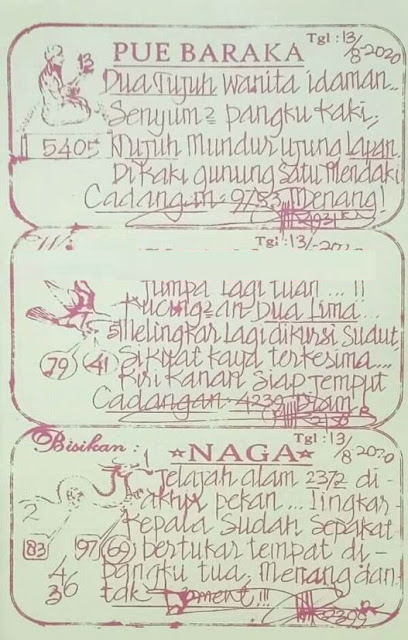 Tgl: 13/8-2020
PUE BARAKA
13
Dua Tujuh wanita idaman...
Senyum2 pangku kaki,
5405
Tujuh Mundur ujung Lapan
Di kaki gunung Satu Mendaki
Cadangan: 9753 Menang!
4931
Tgl: 13/-2020
Jumpa Lagi tuan...!!
Kucing2an Dua Lima...
Melingkar Lagi dikursi Sudut,
79 41
Si Kuat kaya terkesima....
Kiri Kanan Siap Jemput
Cadangan: 4239 Diam!
Tgl: 13/8 2020
Bisikan:
NAGA
1
Jelajah alam 2372 di-
akhir pekan... Lingkar-
2
Kepala Sudah Sepakat
83 97 69
bertukar tempat di-
4
pangku tua, Menang dan-
36
tak
2399